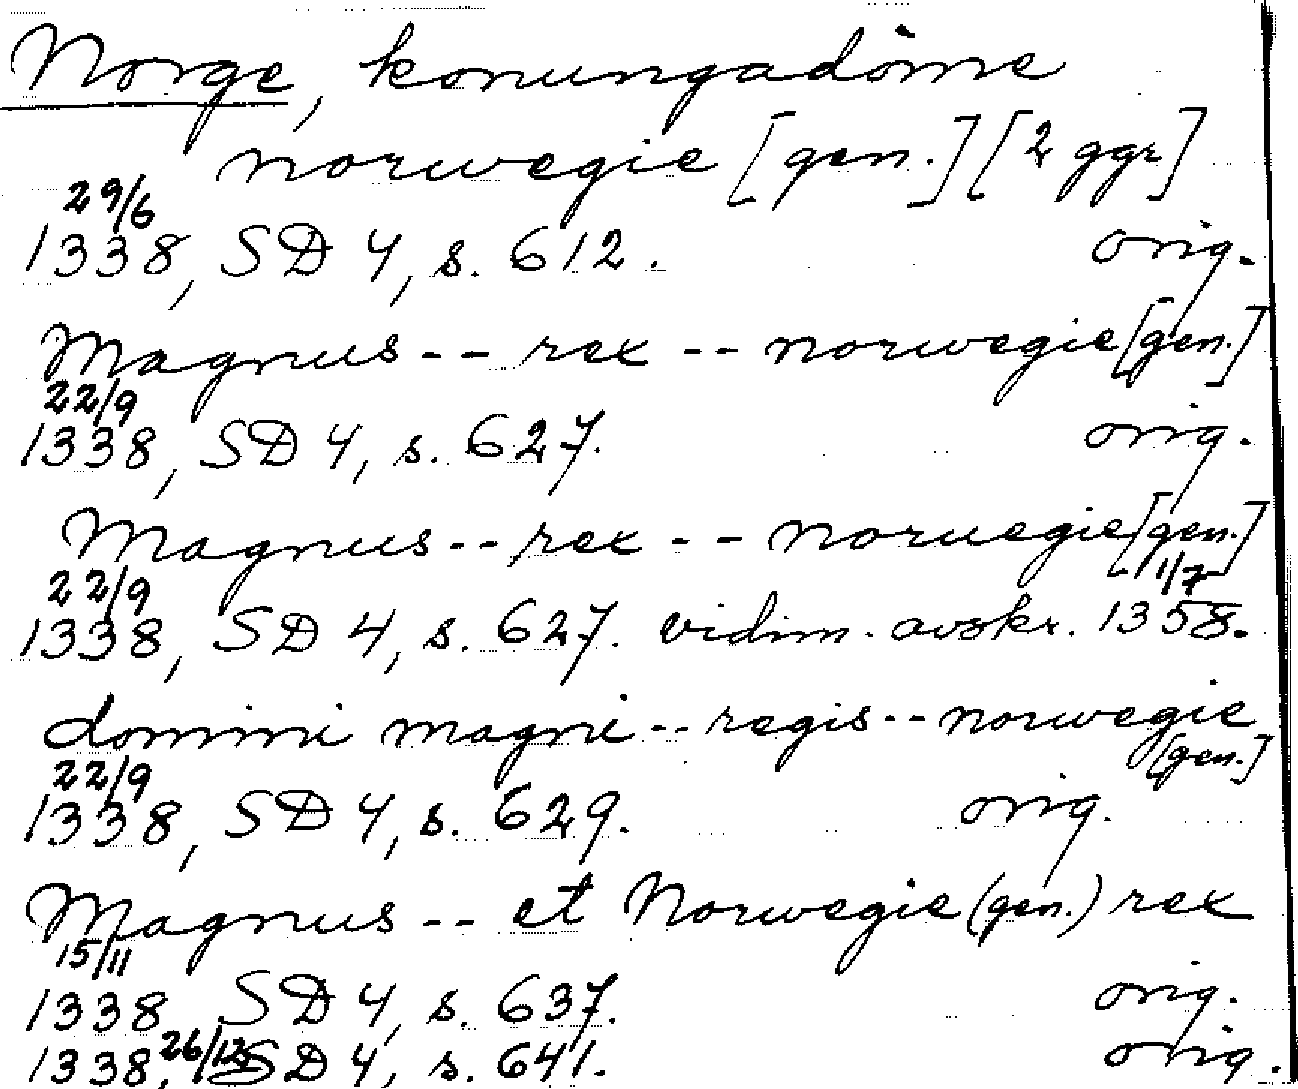 Norge, konungadöme
norwegie [gen.] [2 ggr]
29/6
1338, SD 4, s. 612. orig.
Magnus -- rex -- norwegie [gen.]
22/9
1338, SD 4, s. 627. orig.
Magnus -- rex -- noruegie [gen.]
22/9 1/7
1338, SD 4, s. 627. vidim. avskr. 1358.
domini magni -- regis -- norwegie
[gen.]
22/9
1338, SD 4, s. 629. orig.
Magnus -- et Norwegie (gen.) rex
15/11
1338, SD 4, s. 637. orig.
26/12
1338, SD 4, s. 641. orig.